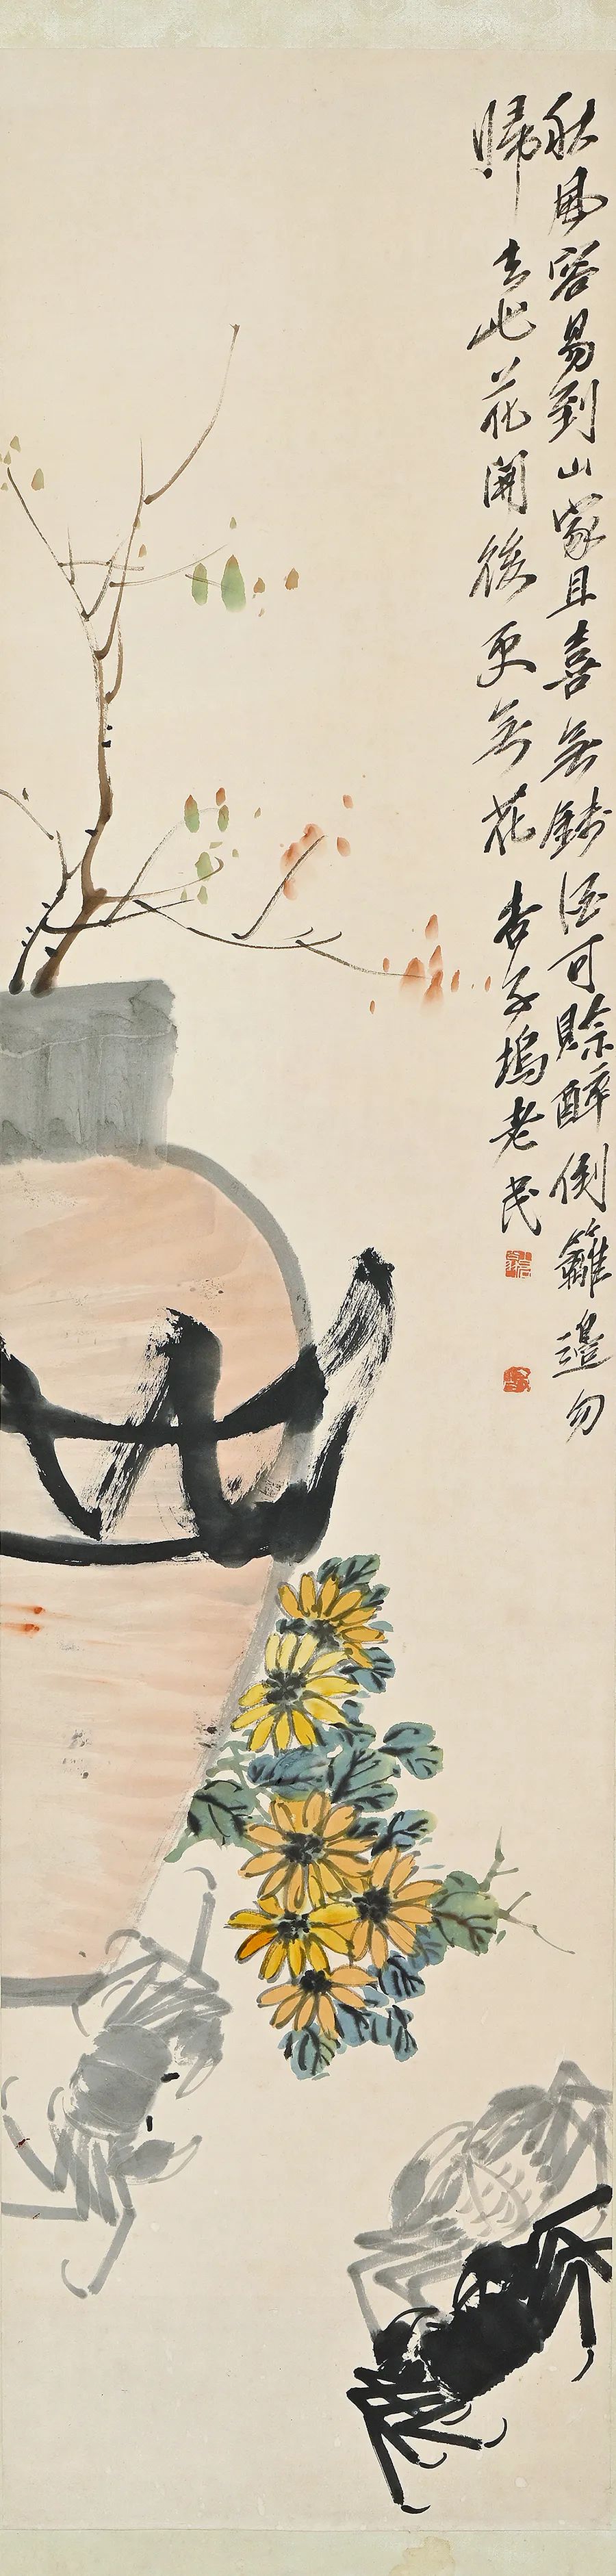 秋風容易到山家且喜無錢酒可賒醉倒籬邊勿
歸去此花開後更無花 杏子塢老民